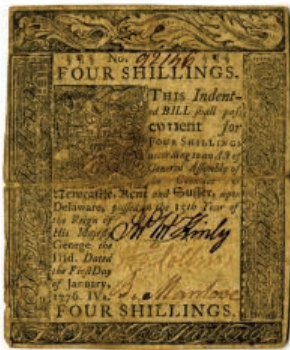 No. 92156
FOUR SHILLINGS.
THIS Indent-
ed BILL shall pass
current for
FOUR SHILLINGS
according to an Act of
General Assembly of
Counties
Newcastle, Kent and Sussex, upon
Delaware, passed in the 15th Year of
the Reign of
His Majesty
George the
IIId. Dated
the First Day
of January,
1776. IVs.
Jn McKinly
FOUR SHILLINGS.